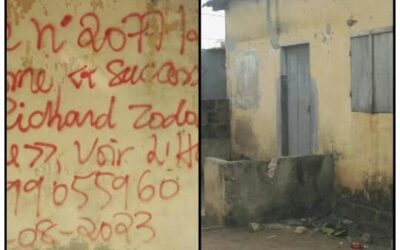 n° 2077/
me et Success
Richard Zodo
e>>, Voir L'H
99055960
-08-2023